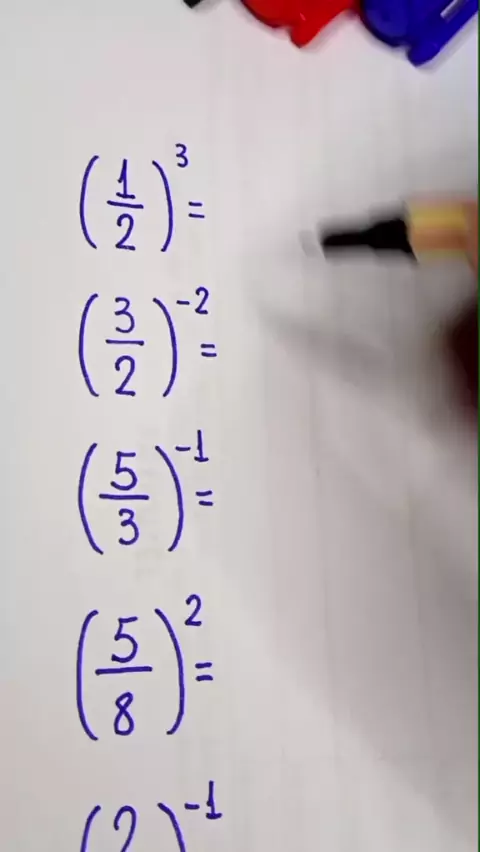 (1/2)^3 =
(3/2)^-2 =
(5/3)^-1 =
(5/8)^2 =
(2)^-1